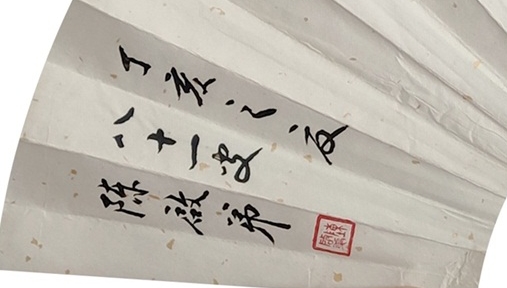 丁亥之夏
八十一叟
陈啟弟